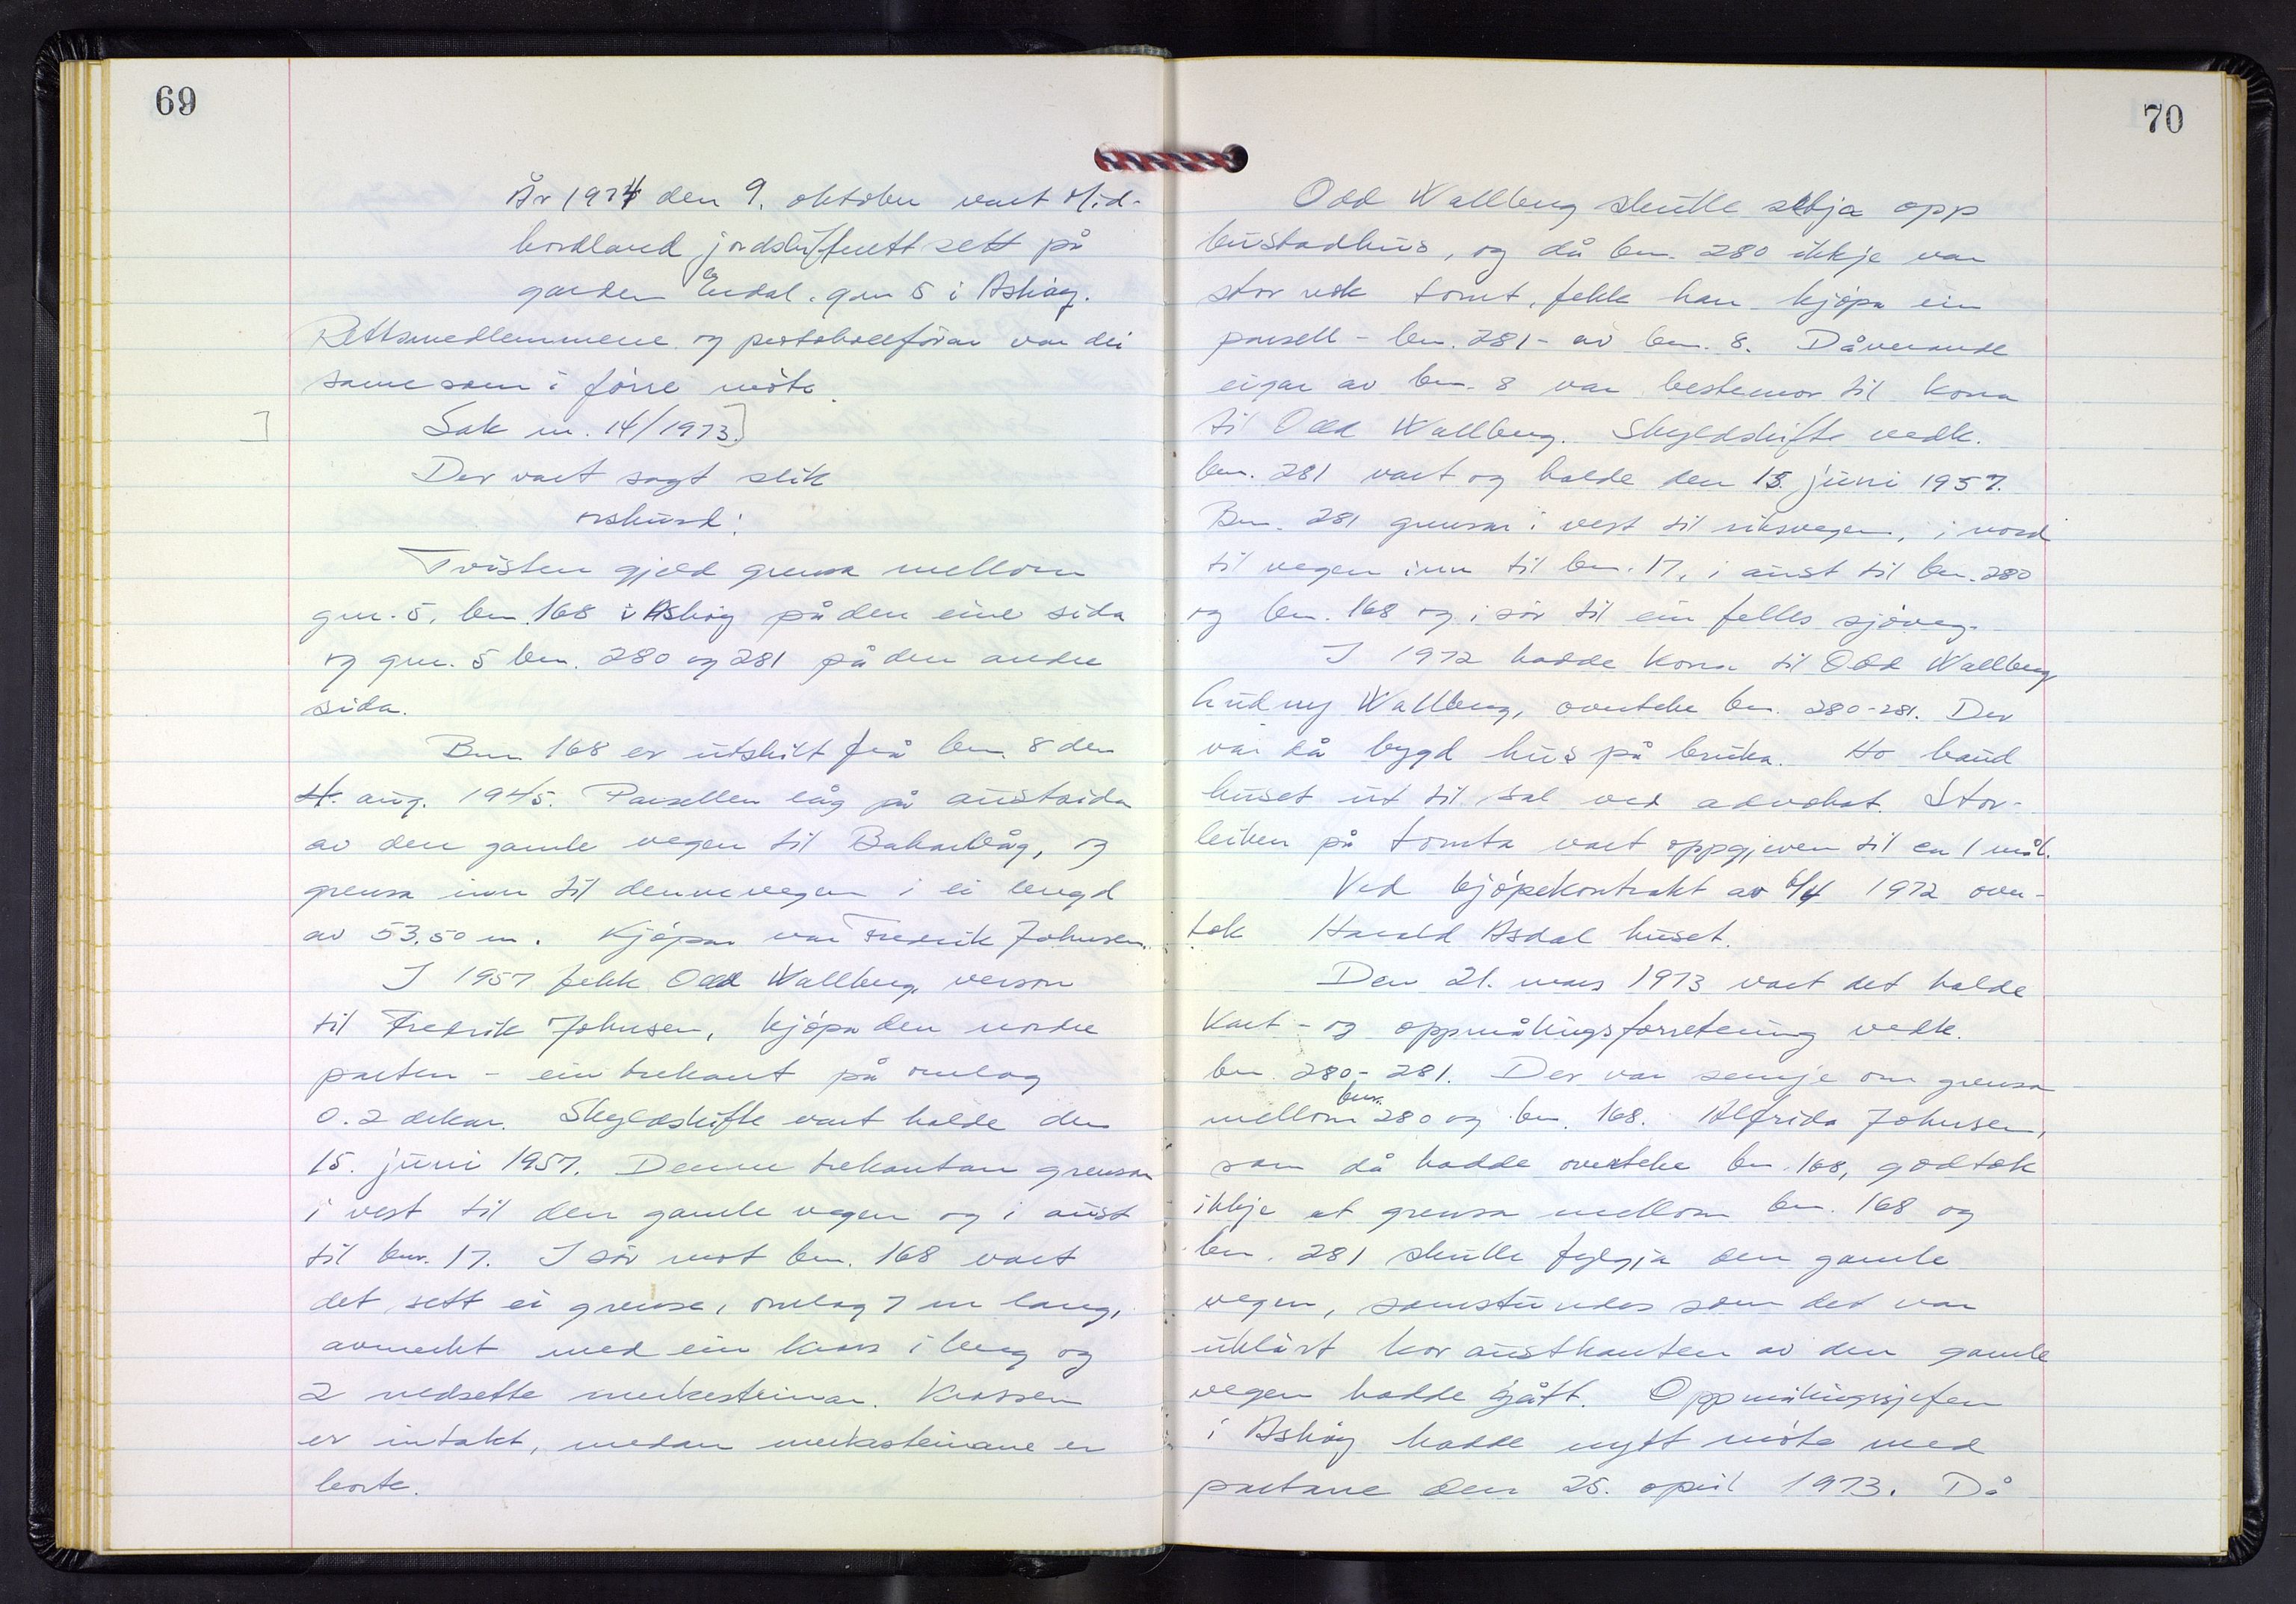 69
År 1974 den 9. oktober vart Mid-
hordland jordskifterett sett på
garden Erdal, gnr 5 i Askøy.
Rettsmedlemmene og protokollførar var dei
same som i førre møte.
Sak nr. 14/1973.]
]
Der vart sagt slik
orskurd:
Tvisten gjeld grensa mellom
gnr. 5, bnr. 168 i Askøy på den eine sida
og gnr. 5 bnr. 280 og 281 på den andre
sida.
Bnr 168 er utskilt frå bnr. 8 den
4. aug. 1945. Parsellen låg på austsida
av den gamle vegen til Bakarvåg, og
grensa inn til denne vegen i ei lengd
av 53,50 m. Kjøpar var Fredrik Johnsen.
I 1957 fekk Odd Wallberg, verson
til Fredrik Johnsen, kjøpa den nordre
parten - ein trekant på omlag
0.2 dekar. Skyldskifte vart halde den
15. juni 1957. Denne trekantan grensar
i vest til den gamle vegen og i aust
til bnr. 17. I sør mot bnr. 168 vart
det sett ei grense, omlag 7 m lang,
avmerkt med ein kross i berg og
2 nedsette merkesteinar. Krossen
er intakt, medan merkesteinane er
borte.
70
Odd Wallberg skulle setja opp
bustadhus, og då bnr. 280 ikkje var
stor nok tomt, fekk han kjøpa ein
parsell - bnr. 281 - av bnr. 8. Dåverande
eigar av bnr. 8 var bestemor til kona
til Odd Wallberg. Skyldskifte vedk.
bnr. 281 vart og halde den 15. juni 1957.
Bnr. 281 grensar i vest til riksvegen, i nord
til vegen inn til bnr. 17, i aust til bnr. 280
og bnr. 168 og i sør til ein felles sjøveg.
I 1972 hadde kona til Odd Wallberg
Gudny Wallberg, overteke bnr. 280-281. Der
var då bygd hus på bruka. Ho baud
huset ut til sal ved advokat. Stor-
leiken på tomta vart oppgjeven til ca 1 mål.
Ved kjøpekontrakt av 6/4 1972 over-
tok Harald Asdal huset.
Den 21. mars 1973 vart det halde
kart- og oppmålingsforretning vedk.
bnr. 280-281. Der var semje om grensa
mellom bnr. 280 og bnr. 168. Alfrida Johnsen,
som då hadde overteke bnr. 168, godtok
ikkje at grensa mellom bnr. 168 og
bnr. 281 skulle fylgja den gamle
vegen, samstundes som det var
uklårt kor austkanten av den gamle
vegen hadde gjått. Oppmålingssjefen
i Askøy hadde nytt møte med
partane den 25. april 1973. Då